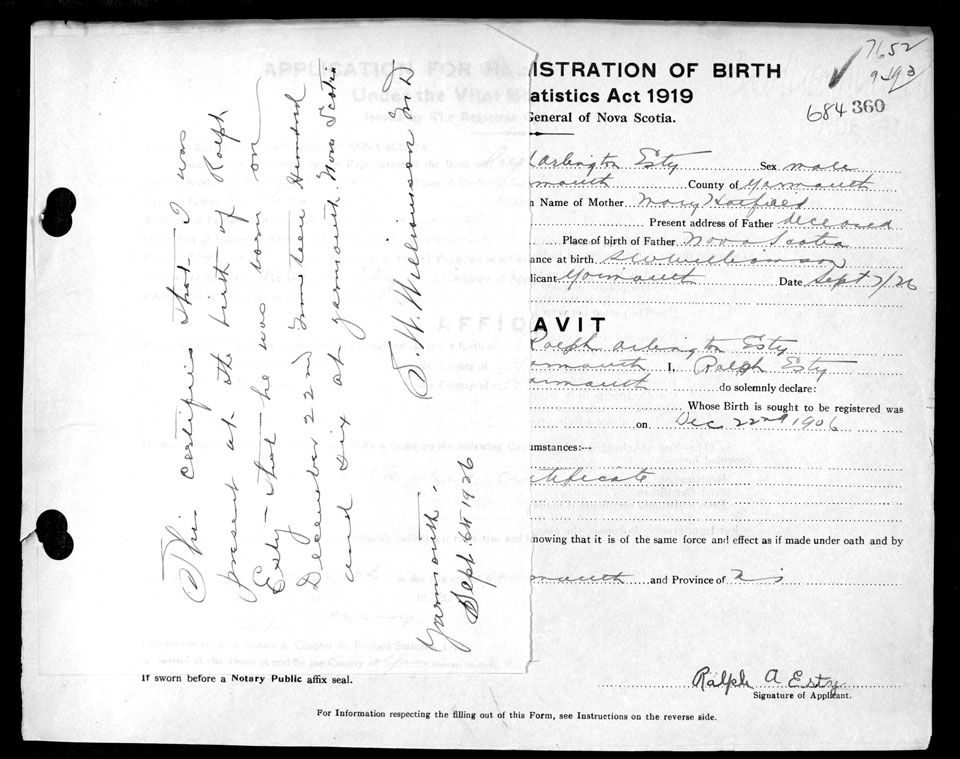 This certifies that I was
present at the birth of Ralph
Esty - that he was born on
December 22nd Nineteen Hundred
and six at Yarmouth Nova Scotia
S. W. Williamson M D
Yarmouth,
Sept. 6th 1926
7652
9-93
684 360
ISTRATION OF BIRTH
atistics Act 1919
General of Nova Scotia.
Arlington Esty Sex male
mouth County of Yarmouth
n Name of Mother Mary Hatfield
Present address of Father deceased
Place of birth of Father Nova Scotia
ance at birth. S W Williamson
licant Yarmouth Date Sept 7/26
AFFIDAVIT
Ralph Arlington Esty
armouth I, Ralph Esty
armouth do solemnly declare:
Whose Birth is sought to be registered was
on Dec 22nd 1906
umstances:--
Certificate
nowing that it is of the same force and effect as if made under oath and by
mouth and Province of N S
If sworn before a Notary Public affix seal.
Ralph A Esty
Signature of Applicant.
For Information respecting the filling out of this Form, see Instructions on the reverse side.